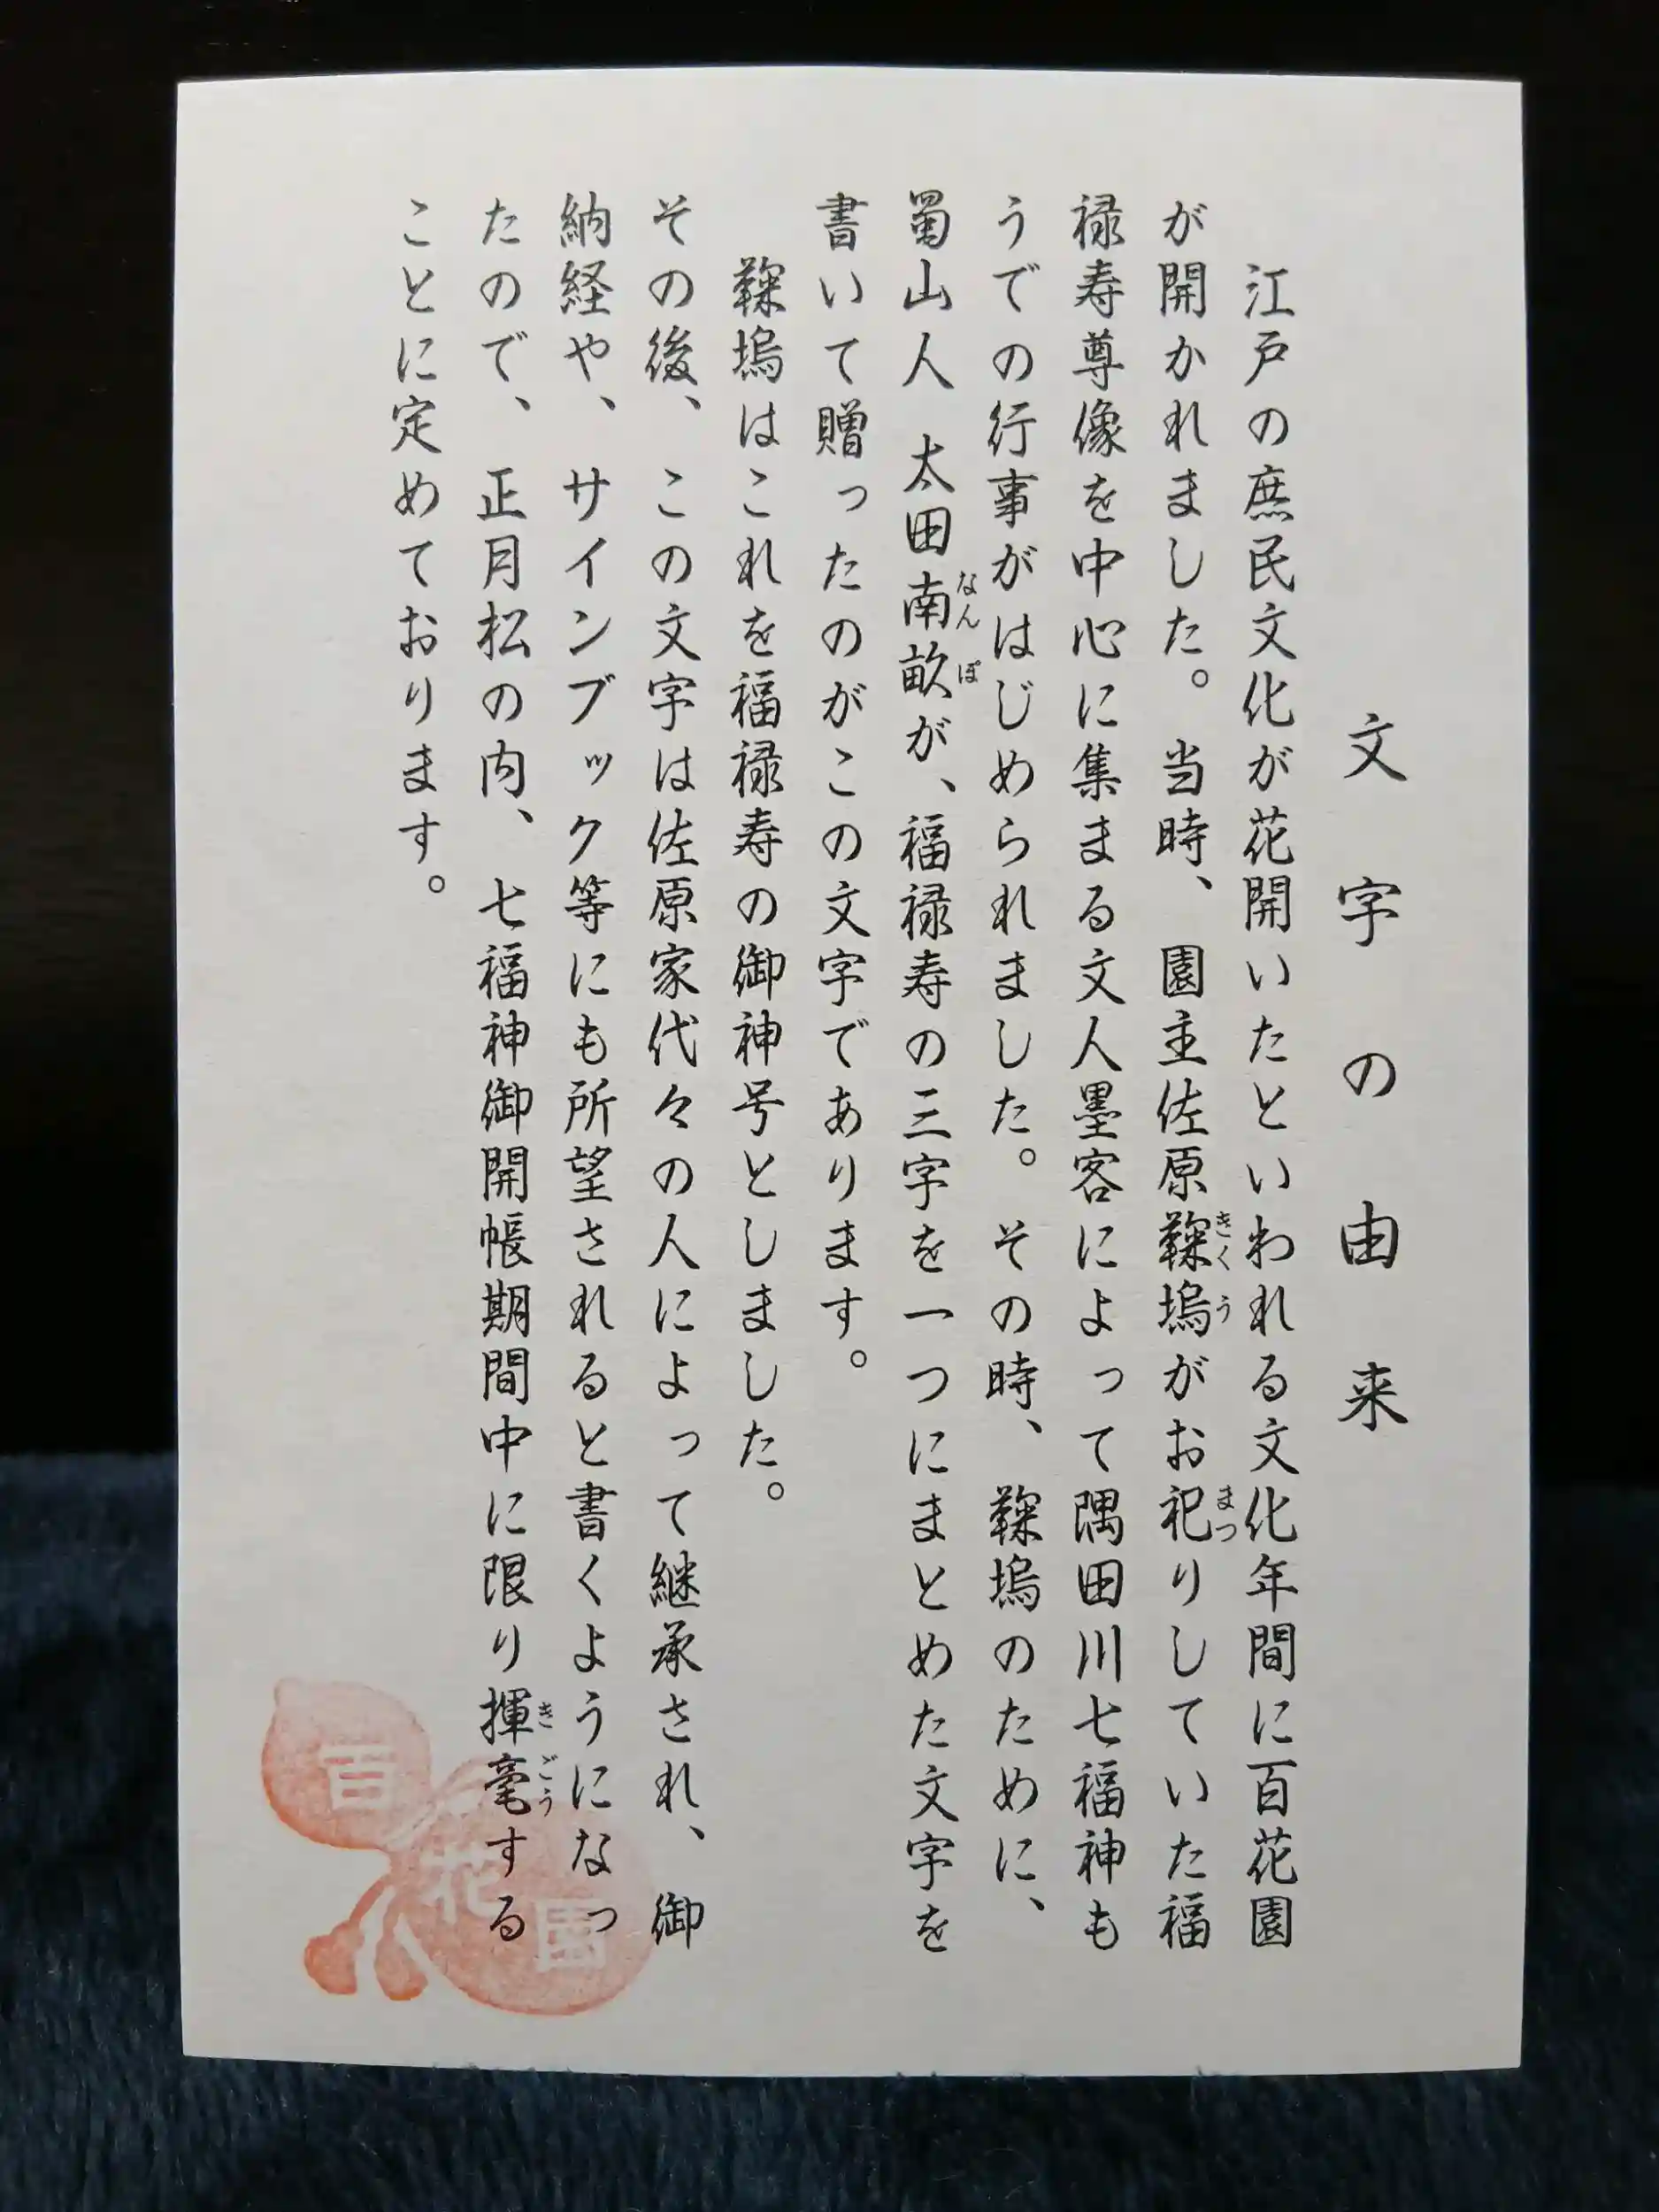 文字の由来
江戸の庶民文化が花開いたといわれる文化年間に百花園
が開かれました。当時、園主佐原鞠塢がお祀りしていた福
禄寿尊像を中心に集まる文人墨客によって隅田川七福神も
うでの行事がはじめられました。その時、鞠塢のために、
蜀山人 太田南畝が、福禄寿の三字を一つにまとめた文字を
書いて贈ったのがこの文字であります。
鞠塢はこれを福禄寿の御神号としました。
その後、この文字は佐原家代々の人によって継承され、御
納経や、サインブック等にも所望されると書くようになっ
たので、正月松の内、七福神御開帳期間中に限り揮毫する
ことに定めております。
きくう
まつ
なんぽ
きごう
百花園